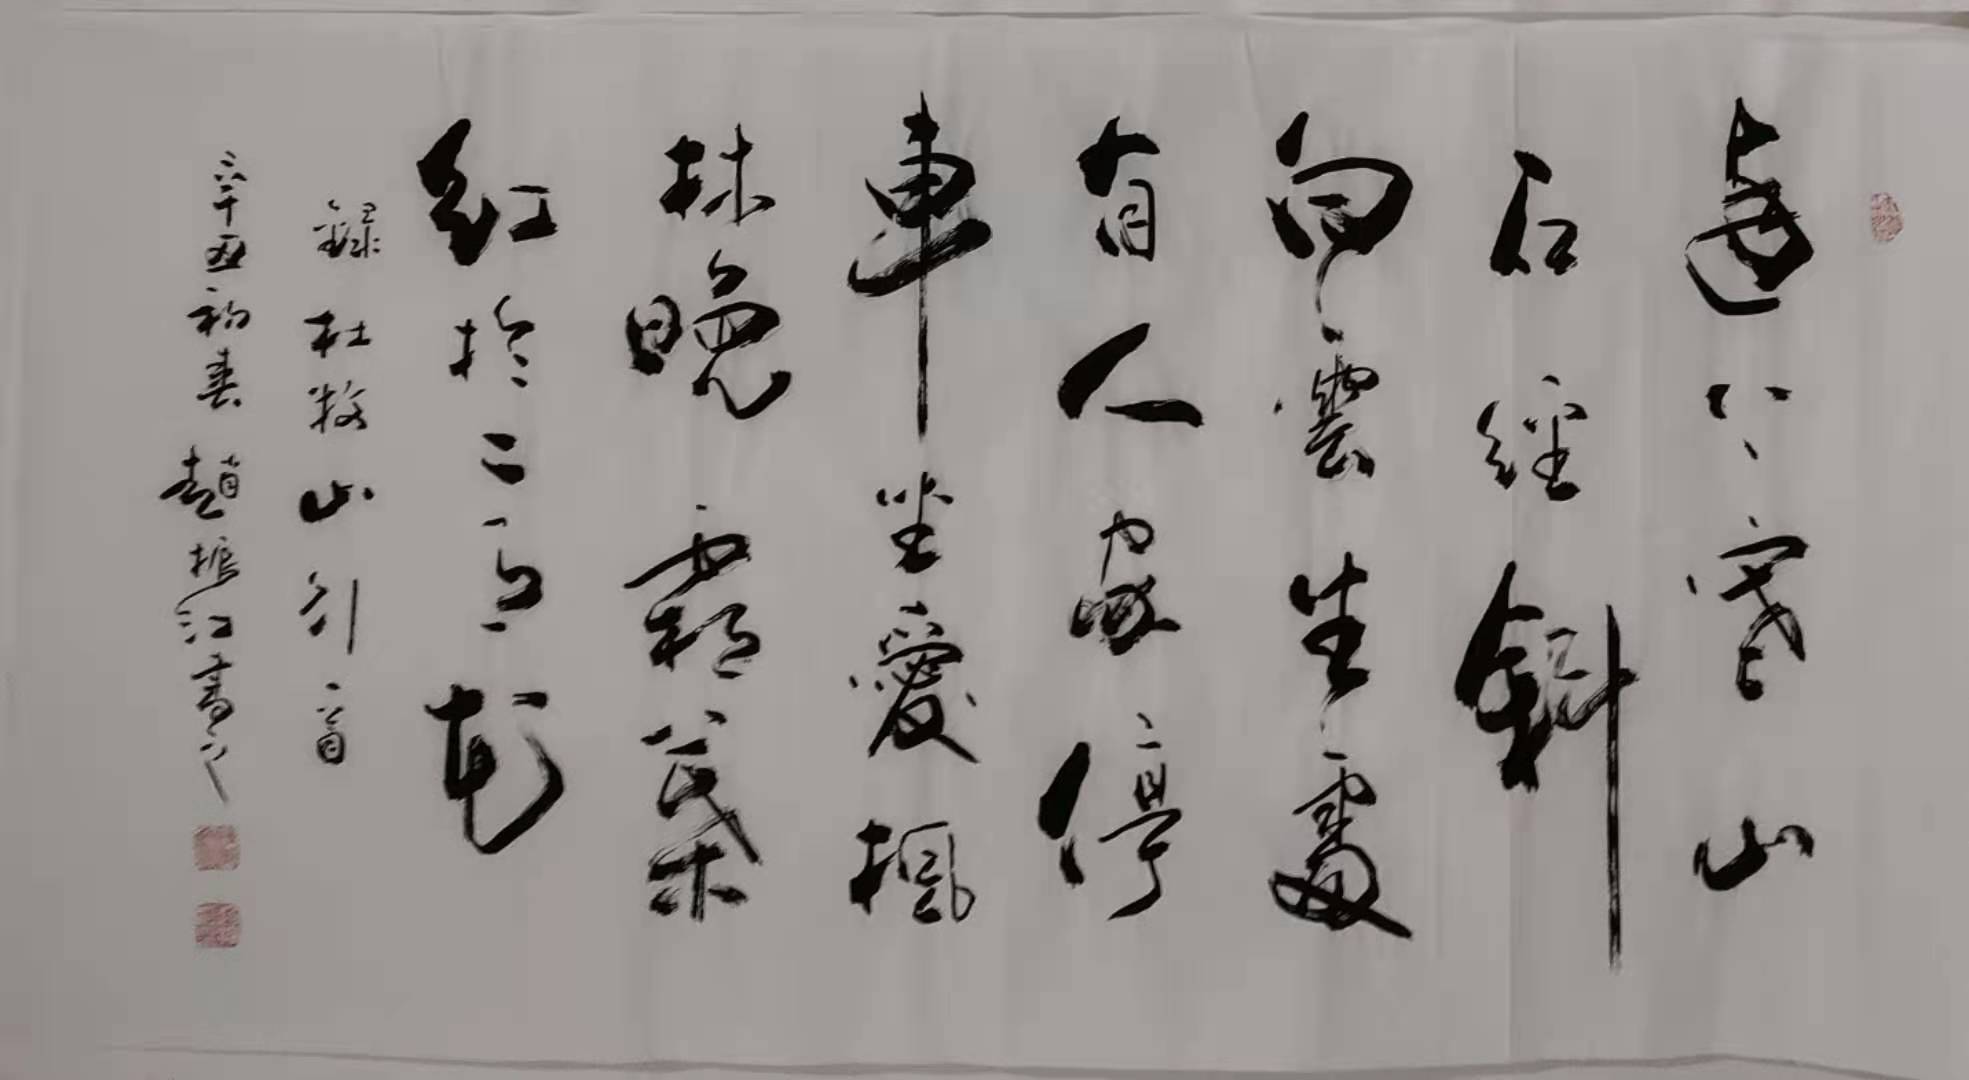 遠上寒山
石經斜
白雲生處
有人家停
車坐愛楓
林晚霜葉
紅於二月花
錄杜牧山行一首
辛丑初春趙振江書之